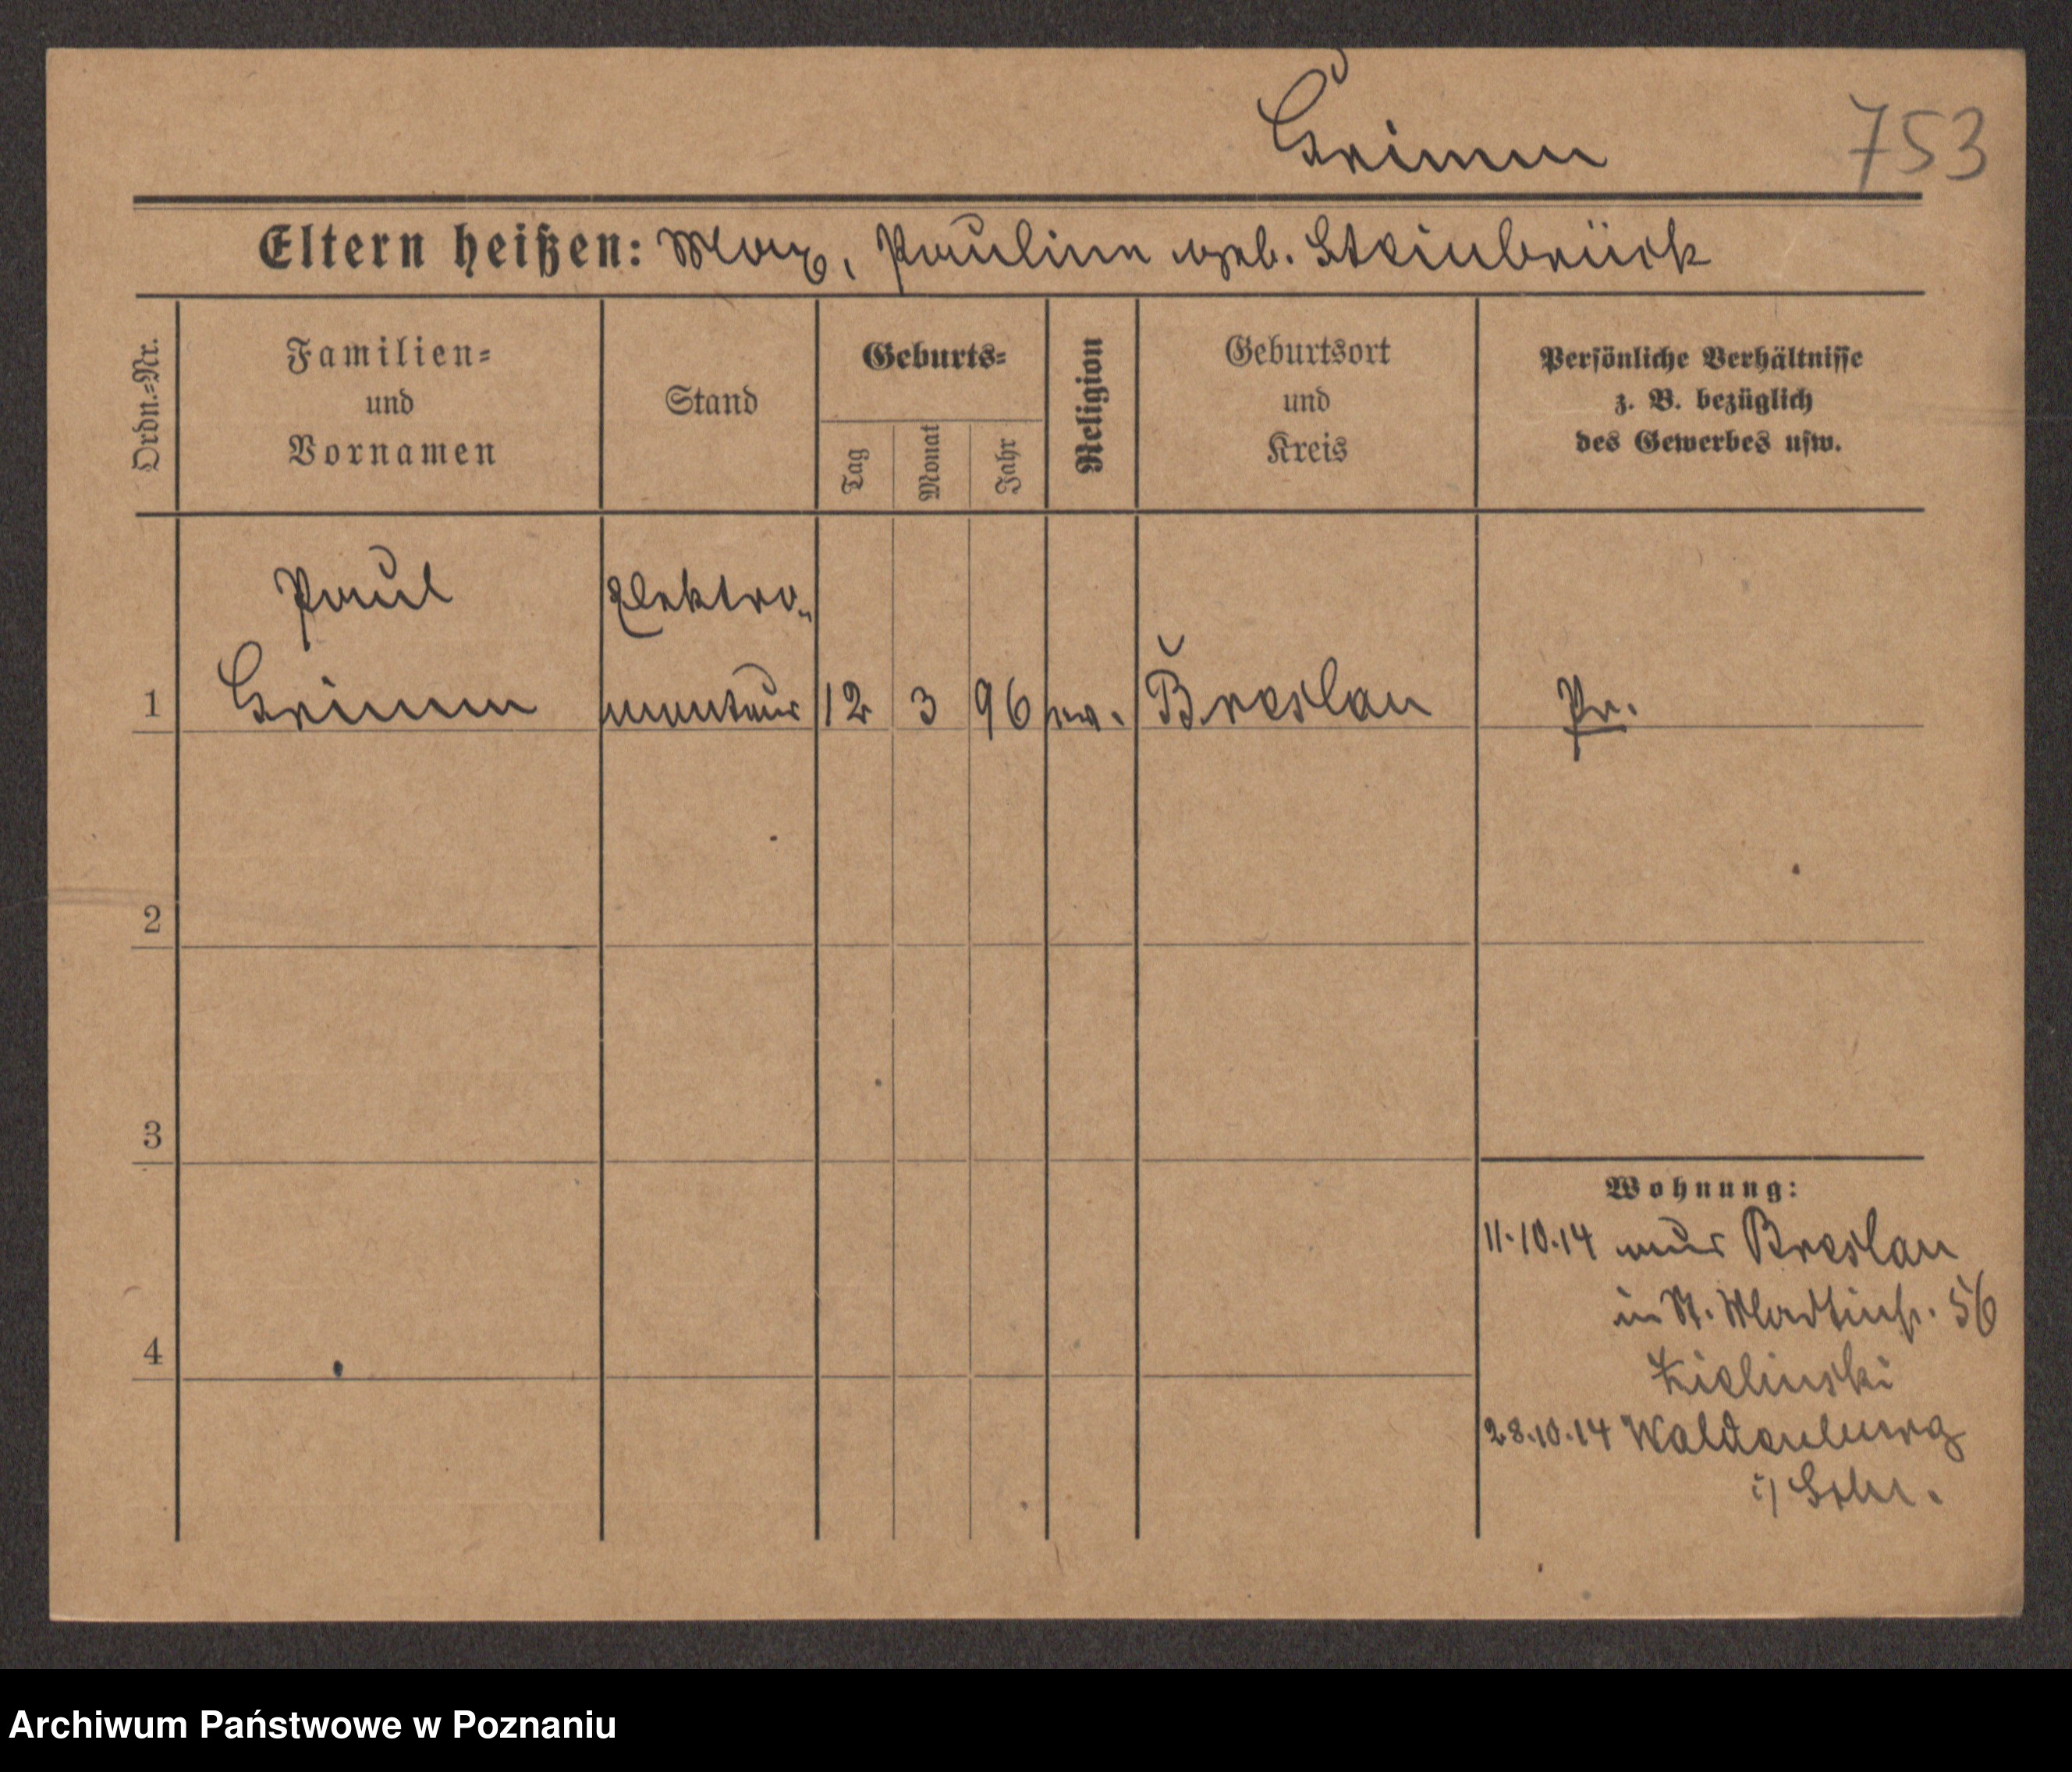 Grimm
753
Eltern heißen: Max, Pauline geb. Steinbrück
Ordn.=Nr.
Familien=
und
Vornamen
Stand
Geburts=
Tag
Monat
Jahr
Religion
Geburtsort
und
Kreis
Persönliche Verhältnisse
z. B. bezüglich
des Gewerbes usw.
Paul
Elektro-
1 Grimm monteur 12 3 96 ev. Breslau Pr.
2
3
4
Wohnung:
11.10.14 aus Breslau
in St. Martinstr. 56
Zielinski
28.10.14 Waldenburg
i/ Schl.
Archiwum Państwowe w Poznaniu